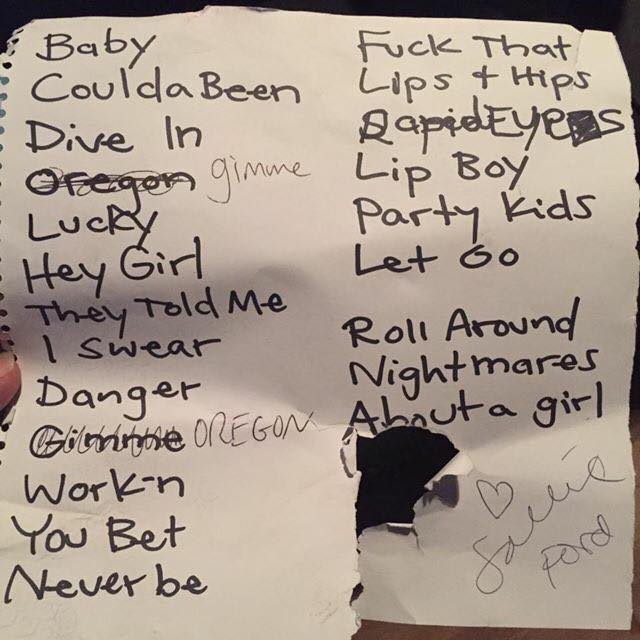 Baby
Coulda Been
Dive In
Oregon gimme
Lucky
Hey Girl
They Told Me
I Swear
Danger
Gimme OREGON
Work-n
You Bet
Never be
Fuck That
Lips + Hips
Rapid Eyes
Lip Boy
Party Kids
Let Go
Roll Around
Nightmares
About a girl
♡ Sallie
Ford